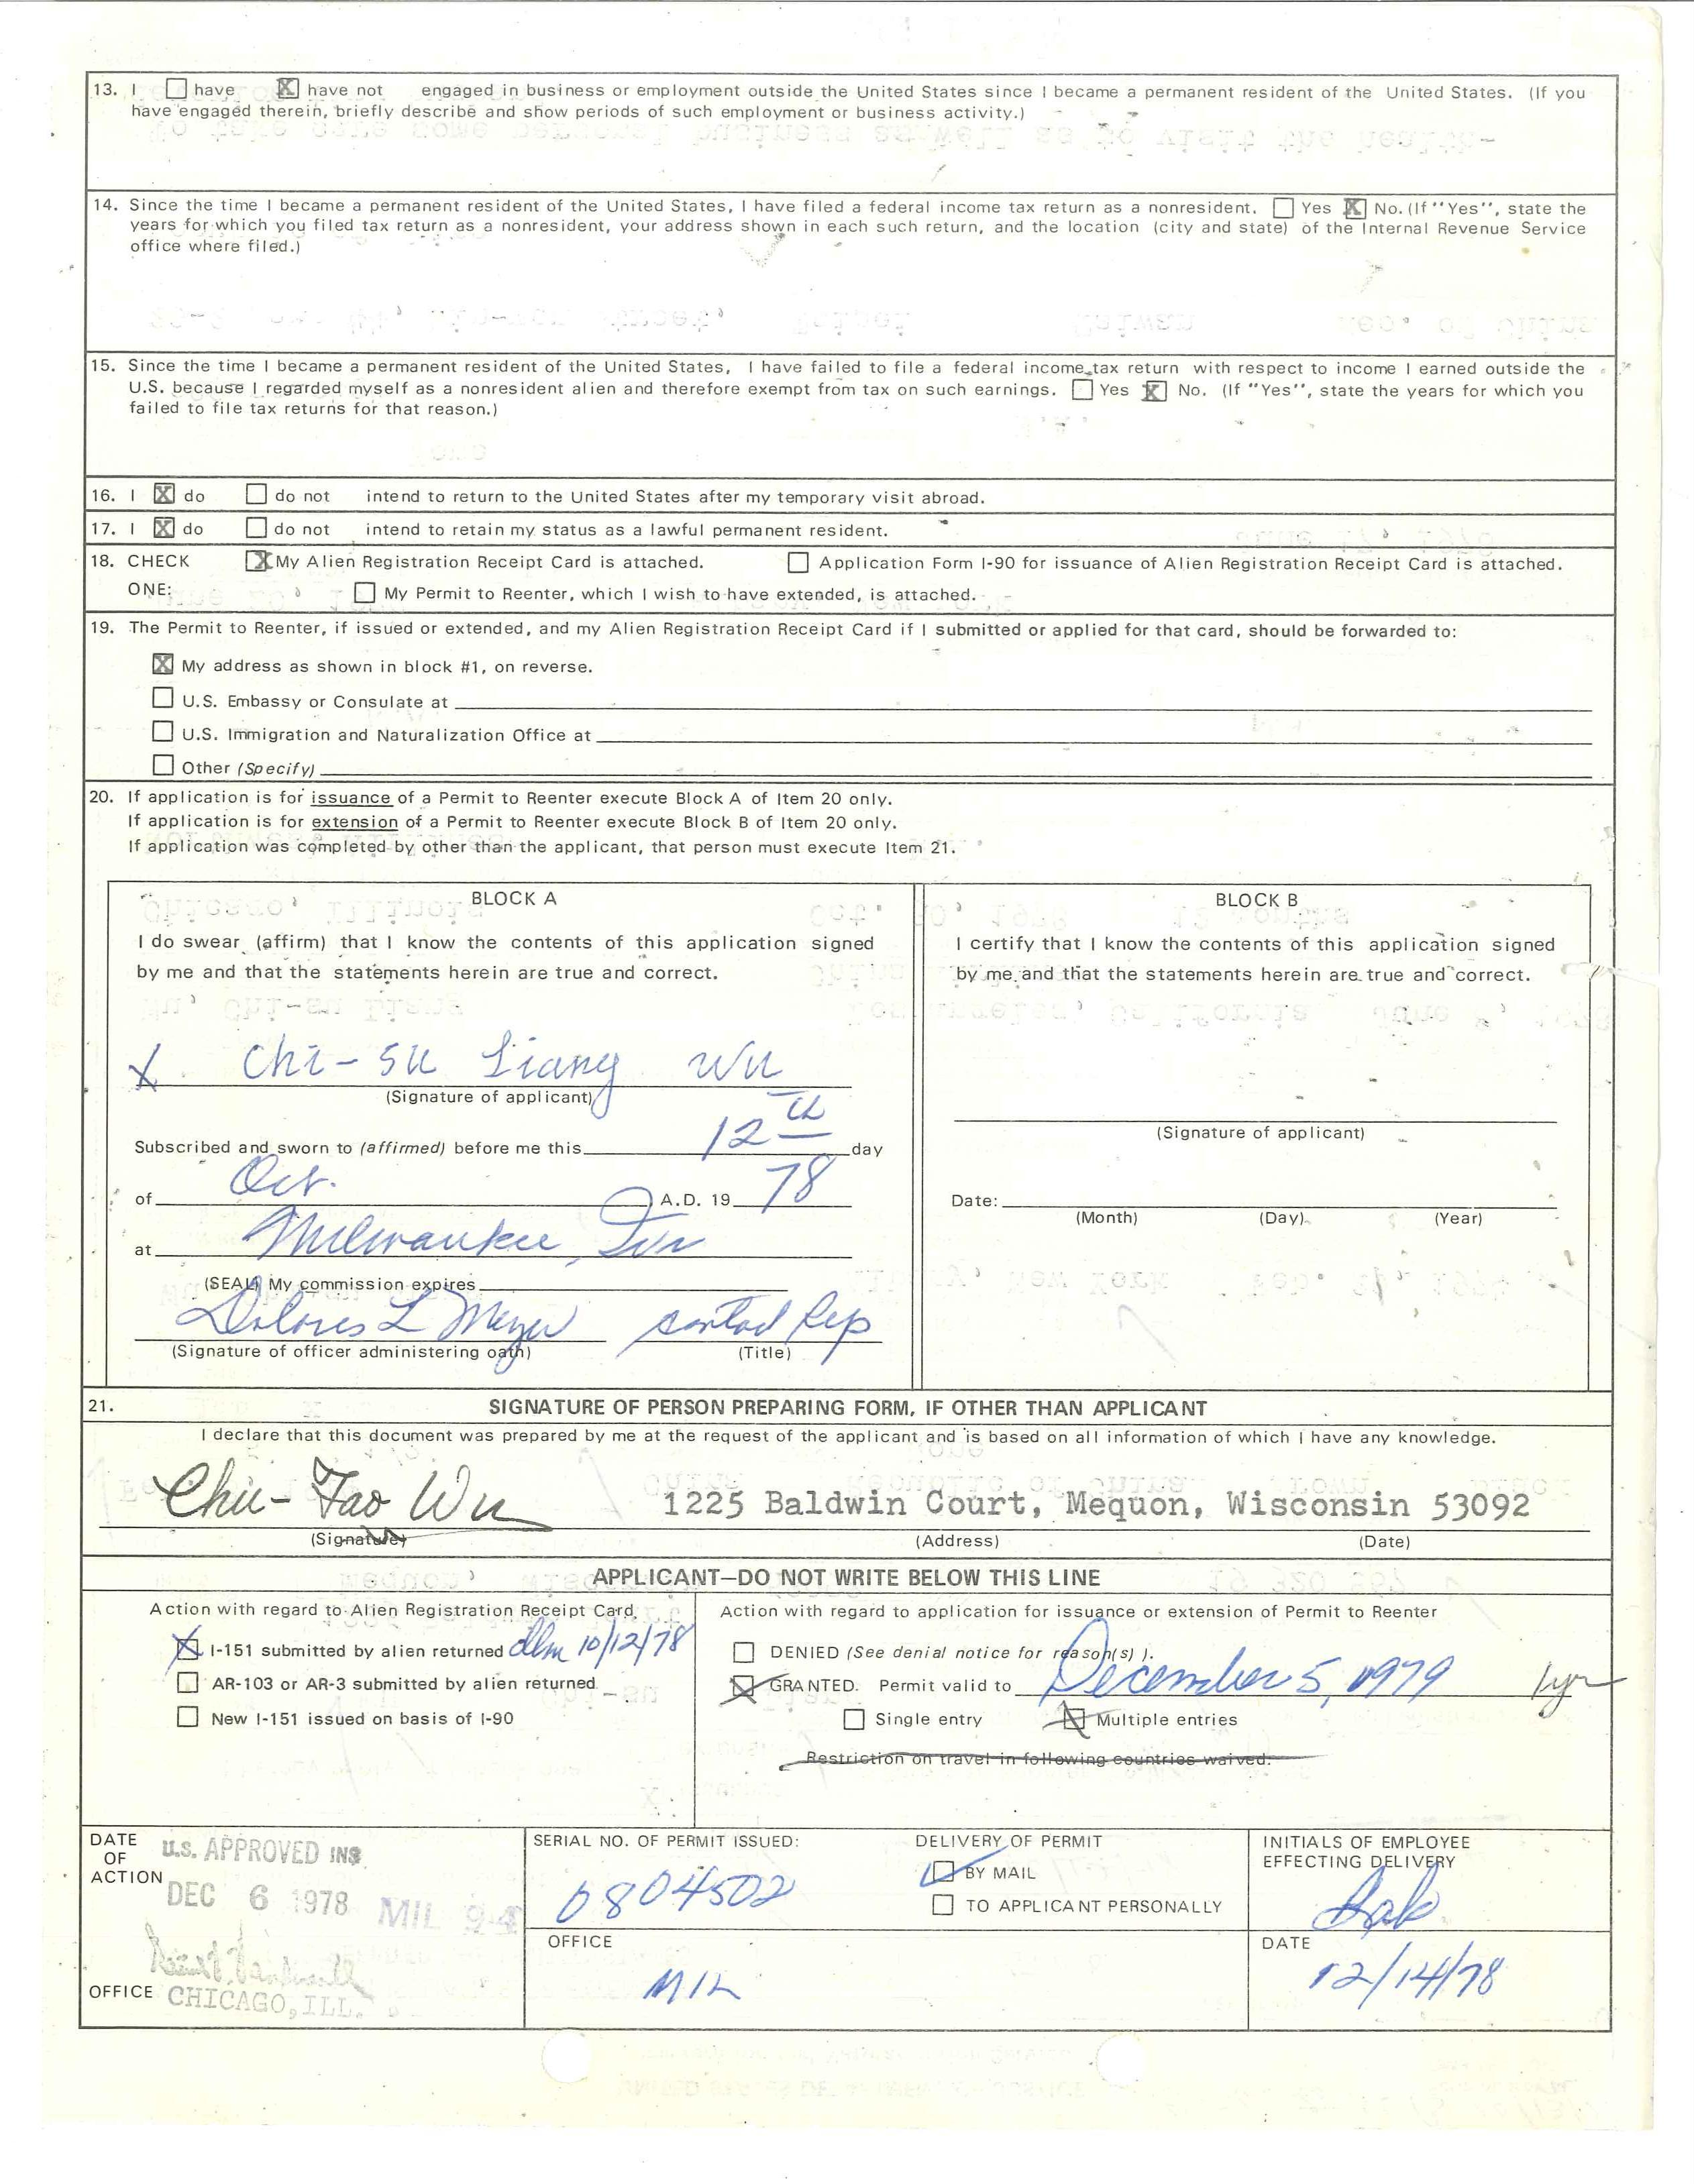 13. I ☐ have ☒ have not engaged in business or employment outside the United States since I became a permanent resident of the United States. (If you
have engaged therein, briefly describe and show periods of such employment or business activity.)
14. Since the time I became a permanent resident of the United States, I have filed a federal income tax return as a nonresident. ☐ Yes ☒ No. (If "Yes", state the
years for which you filed tax return as a nonresident, your address shown in each such return, and the location (city and state) of the Internal Revenue Service
office where filed.)
15. Since the time I became a permanent resident of the United States, I have failed to file a federal income tax return with respect to income I earned outside the
U.S. because I regarded myself as a nonresident alien and therefore exempt from tax on such earnings. ☐ Yes ☒ No. (If "Yes", state the years for which you
failed to file tax returns for that reason.)
16. I ☒ do ☐ do not intend to return to the United States after my temporary visit abroad.
17. I ☒ do ☐ do not intend to retain my status as a lawful permanent resident.
18. CHECK ☒ My Alien Registration Receipt Card is attached. ☐ Application Form I-90 for issuance of Alien Registration Receipt Card is attached.
ONE: ☐ My Permit to Reenter, which I wish to have extended, is attached.
19. The Permit to Reenter, if issued or extended, and my Alien Registration Receipt Card if I submitted or applied for that card, should be forwarded to:
☒ My address as shown in block #1, on reverse.
☐ U.S. Embassy or Consulate at
☐ U.S. Immigration and Naturalization Office at
☐ Other (Specify)
20. If application is for issuance of a Permit to Reenter execute Block A of Item 20 only.
If application is for extension of a Permit to Reenter execute Block B of Item 20 only.
If application was completed by other than the applicant, that person must execute Item 21.
BLOCK A
I do swear (affirm) that I know the contents of this application signed
by me and that the statements herein are true and correct.
X Chi-su Liang Wu
(Signature of applicant)
Subscribed and sworn to (affirmed) before me this 12th day
of Oct. A.D. 19 78
at Milwaukee, Wis
(SEAL) My commission expires
Dolores L Meyer Contact Rep
(Signature of officer administering oath) (Title)
BLOCK B
I certify that I know the contents of this application signed
by me and that the statements herein are true and correct.
(Signature of applicant)
Date:
(Month) (Day) (Year)
21. SIGNATURE OF PERSON PREPARING FORM, IF OTHER THAN APPLICANT
I declare that this document was prepared by me at the request of the applicant and is based on all information of which I have any knowledge.
Chu-Tao Wu 1225 Baldwin Court, Mequon, Wisconsin 53092
(Signature) (Address) (Date)
APPLICANT—DO NOT WRITE BELOW THIS LINE
Action with regard to Alien Registration Receipt Card.
☒ I-151 submitted by alien returned dlm 10/12/78
☐ AR-103 or AR-3 submitted by alien returned
☐ New I-151 issued on basis of I-90
Action with regard to application for issuance or extension of Permit to Reenter
☐ DENIED (See denial notice for reason(s) ).
☒ GRANTED. Permit valid to December 5, 1979 1yr
☐ Single entry ☒ Multiple entries
Restriction on travel in following countries waived:
DATE OF ACTION
U.S. APPROVED INS
DEC 6 1978 MIL 94
OFFICE CHICAGO, ILL.
SERIAL NO. OF PERMIT ISSUED:
0804502
DELIVERY OF PERMIT
☑ BY MAIL
☐ TO APPLICANT PERSONALLY
INITIALS OF EMPLOYEE
EFFECTING DELIVERY
OFFICE
MIL
DATE
12/14/78